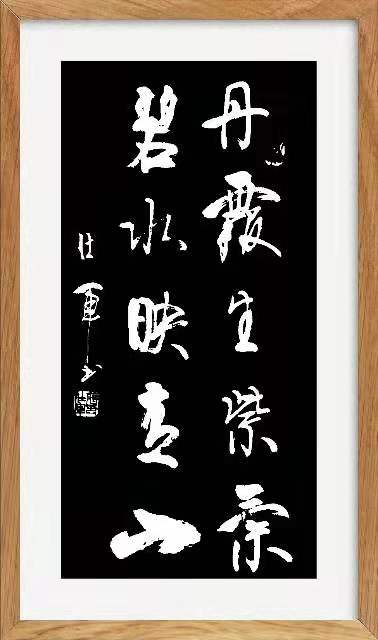 丹霞生紫氣
碧水映青山
軍书